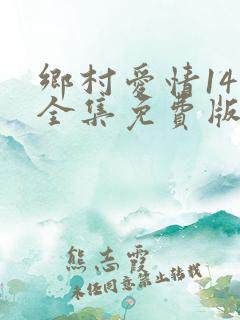 鄉村愛情14
全集免費版
熊志霞
未任同意禁止转载